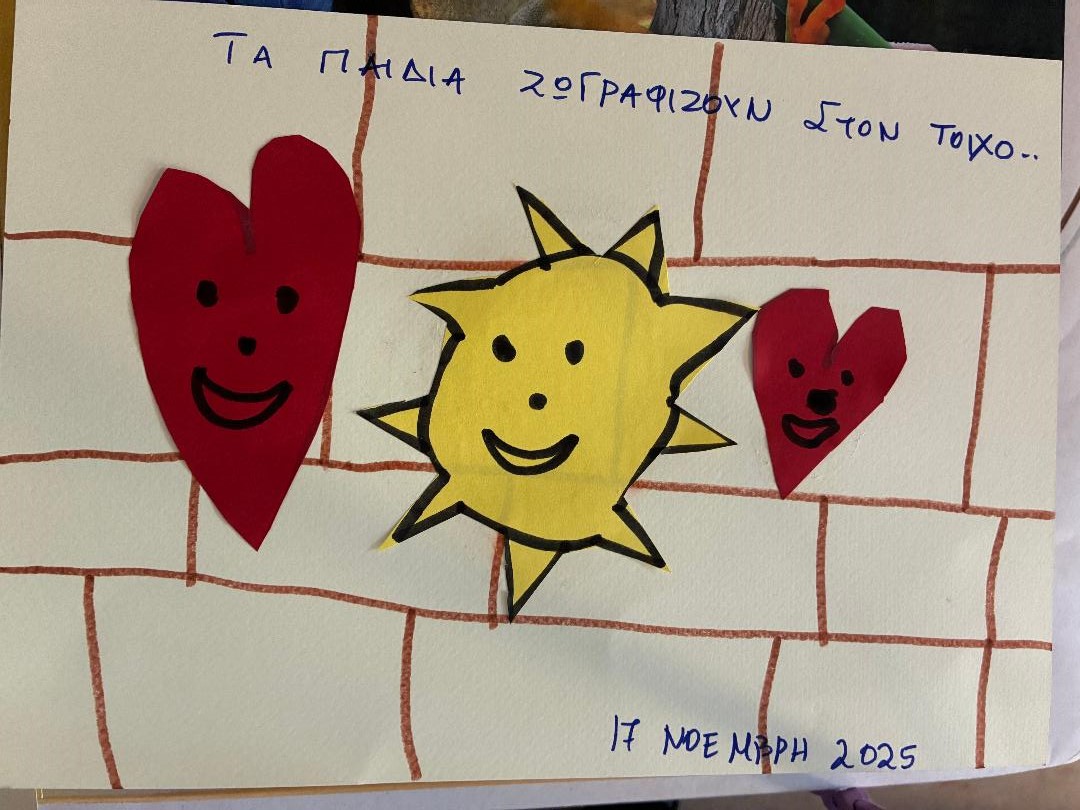 ΤΑ ΠΑΙΔΙΑ ΖΩΓΡΑΦΙΖΟΥΝ ΣΤΟΝ ΤΟΙΧΟ..
17 ΝΟΕΜΒΡΗ 2025